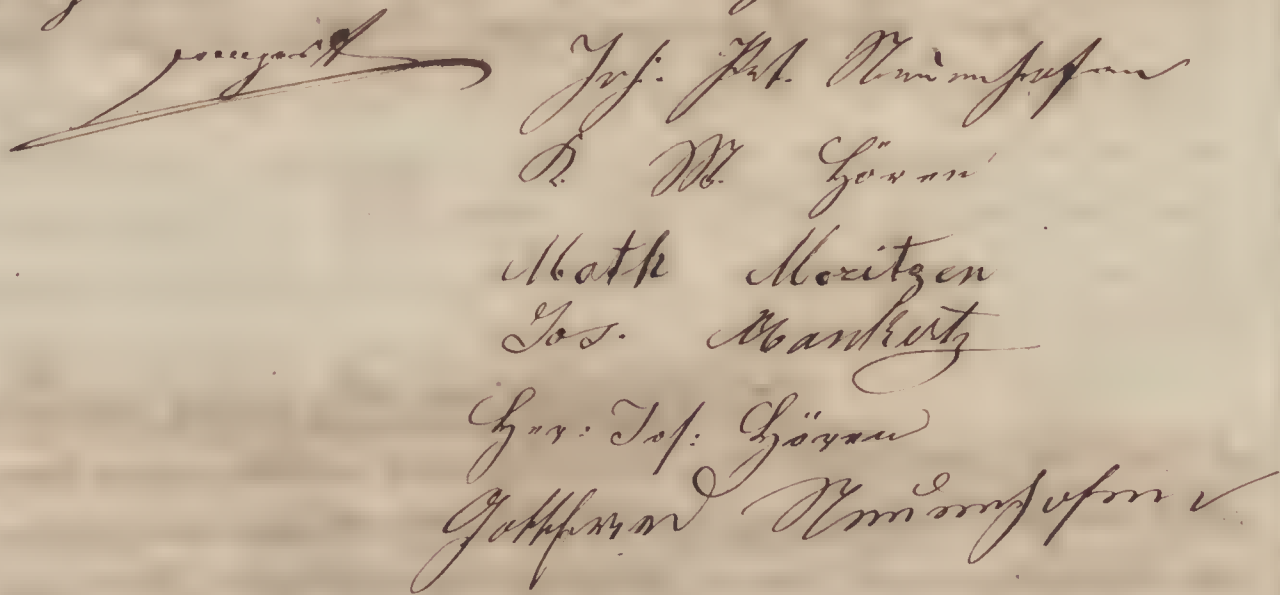 Joh: Pet. Neuenhofen
K. W. Hören
Math Moritzen
Jos. Mankertz
Her: Jos: Hören
Gottfried Neuenhofen